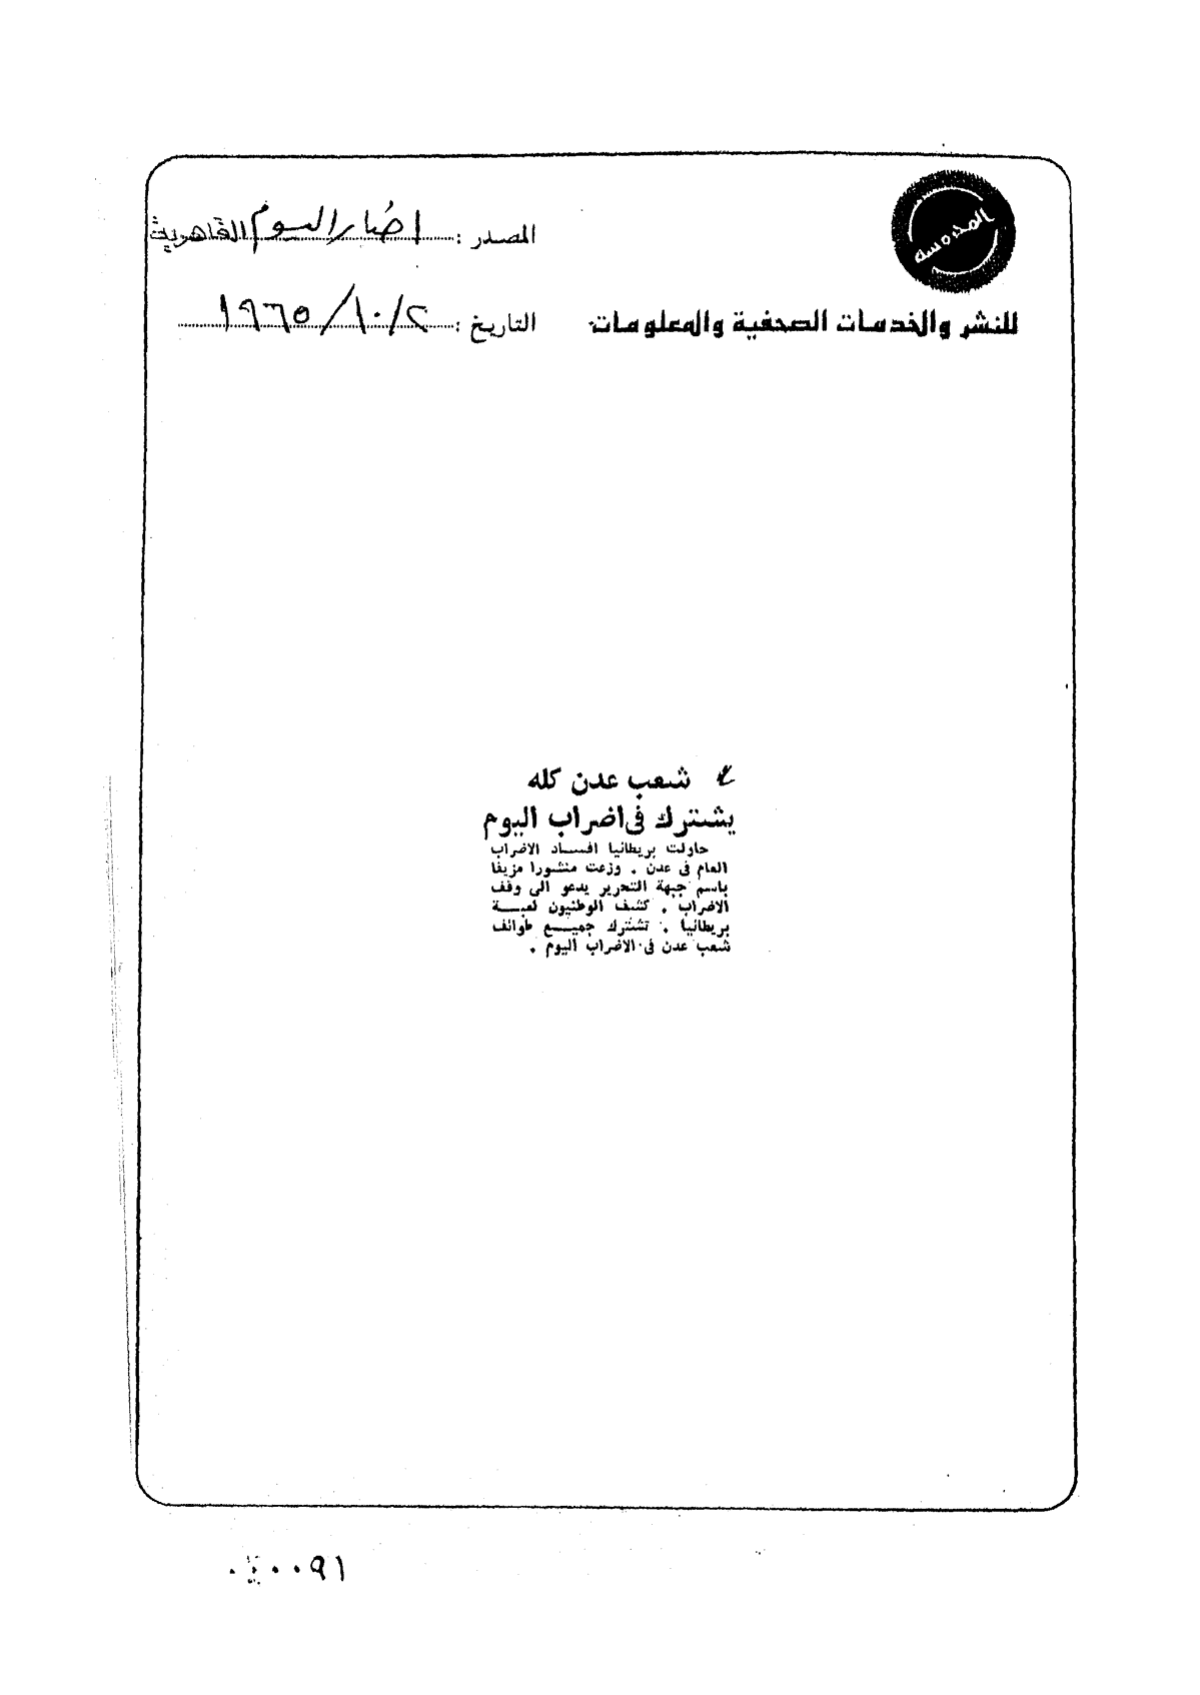 المدرسة
للنشر والخدمات الصحفية والمعلومات
المصدر : اخبار اليوم القاهرية
التاريخ : ٢/١٠/١٩٦٥
شعب عدن كله
يشترك فى اضراب اليوم
حاولت بريطانيا افساد الاضراب
العام فى عدن . وزعت منشورا مزيفا
باسم جبهة التحرير يدعو الى وقف
الاضراب . كشف الوطنيون لعبة
بريطانيا . تشترك جميع طوائف
شعب عدن فى الاضراب اليوم .